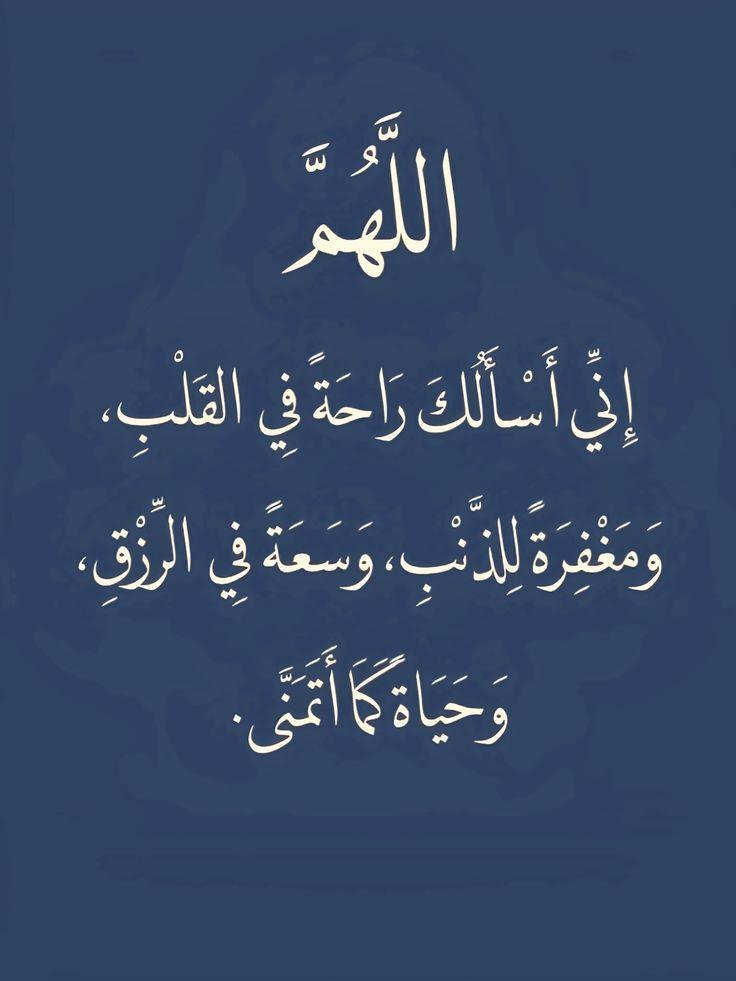 اللَّهُمَّ
إِنِّي أَسْأَلُكَ رَاحَةً فِي القَلْبِ،
وَمَغْفِرَةً لِلذَّنْبِ، وَسَعَةً فِي الرِّزْقِ،
وَحَيَاةً كَمَا أَتَمَنَّى.